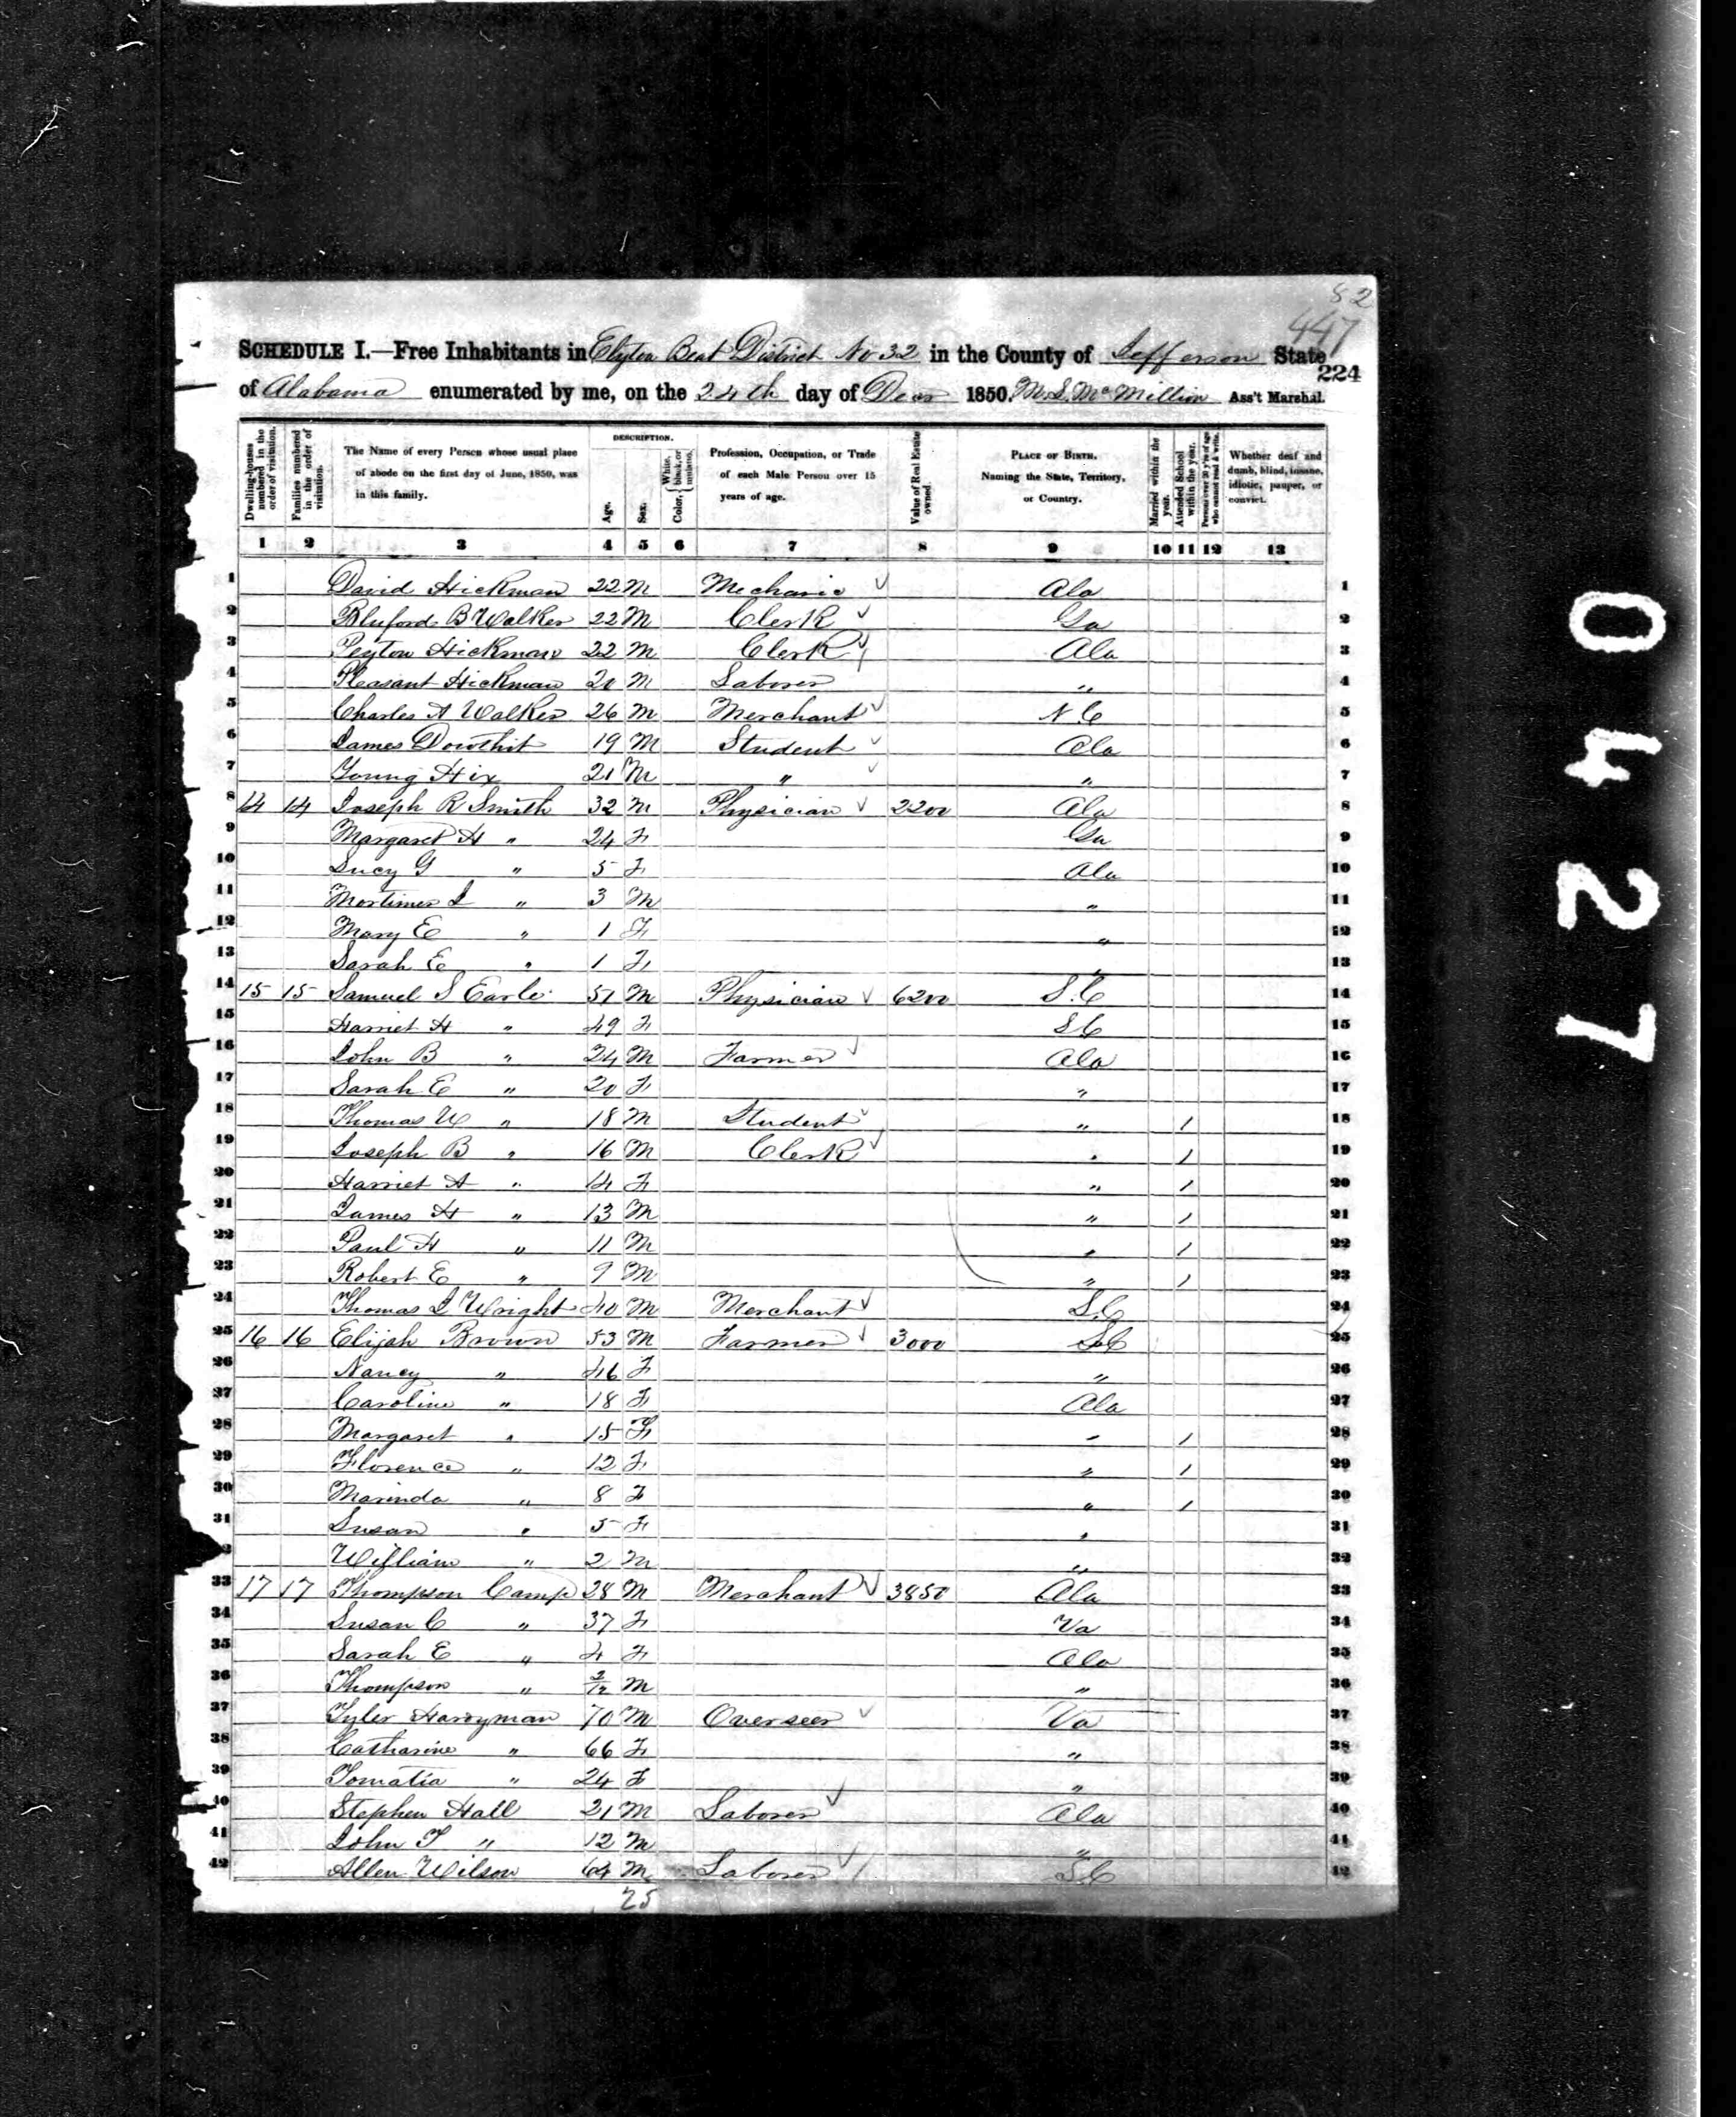 82
447
SCHEDULE I.—Free Inhabitants in Elyton Beat District No 32 in the County of Jefferson State
224
of Alabama enumerated by me, on the 24th day of Decr 1850. M. S. McMillion Ass't Marshal.
Dwelling-houses numbered in the order of visitation.
Families numbered in the order of visitation.
The Name of every Person whose usual place of abode on the first day of June, 1850, was in this family.
DESCRIPTION.
Age.
Sex.
Color, White, black, or mulatto.
Profession, Occupation, or Trade of each Male Person over 15 years of age.
Value of Real Estate owned.
PLACE OF BIRTH. Naming the State, Territory, or Country.
Married within the year.
Attended School within the year.
Persons over 20 y'rs of age who cannot read & write.
Whether deaf and dumb, blind, insane, idiotic, pauper, or convict.
1 2 3 4 5 6 7 8 9 10 11 12 13
1 David Hickman 22 M Mechanic Ala 1
2 Bluford B Walker 22 M Clerk Ga 2
3 Peyton Hickman 22 M Clerk Ala 3
4 Pleasant Hickman 20 M Laborer " 4
5 Charles A Walker 26 M Merchant N C 5
6 James Dowthit 19 M Student Ala 6
7 Young Hix 21 M " " 7
8 14 14 Joseph R Smith 32 M Physician 2200 Ala 8
9 Margaret H " 24 F Ga 9
10 Lucy G " 5 F Ala 10
11 Mortimer J " 3 M " 11
12 Mary E " 1 F " 12
13 Sarah E " 1 F " 13
14 15 15 Samuel S Earle 51 M Physician 6200 S.C 14
15 Harriet H " 49 F S C 15
16 John B " 24 M Farmer Ala 16
17 Sarah E " 20 F " 17
18 Thomas W " 18 M Student " 1 18
19 Joseph B " 16 M Clerk " 1 19
20 Harriet A " 14 F " 1 20
21 James H " 13 M " 1 21
22 Paul H " 11 M " 1 22
23 Robert E " 9 M " 1 23
24 Thomas J Wright 40 M Merchant S.C 24
25 16 16 Elijah Brown 53 M Farmer 3000 S C 25
26 Nancy " 46 F " 26
27 Caroline " 18 F Ala 27
28 Margaret " 15 F " 1 28
29 Florence " 12 F " 1 29
30 Marinda " 8 F " 1 30
31 Susan " 5 F " 31
2 William " 2 M " 32
33 17 17 Thompson Camp 28 M Merchant 3850 Ala 33
34 Susan C " 37 F Va 34
35 Sarah E " 4 F Ala 35
36 Thompson " 2/12 M " 36
37 Tyler Harryman 70 M Overseer Va 37
38 Catharine " 66 F " 38
39 Tomatia " 24 F " 39
40 Stephen Hall 21 M Laborer Ala 40
41 John T " 12 M " 41
42 Allen Wilson 64 M Laborer S.C 42
25
0427